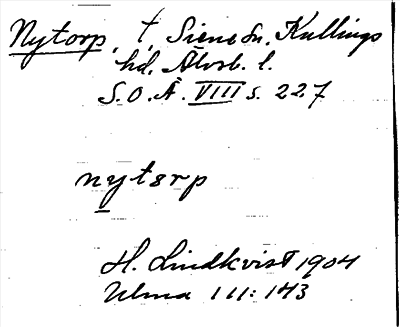 Nytorp, t, Siene sn, Kullings
hd, Älvsb. l.
S.O.Ä. VIII s. 227
nytorp
H. Lindkvist 1904
Ulma 111: 143